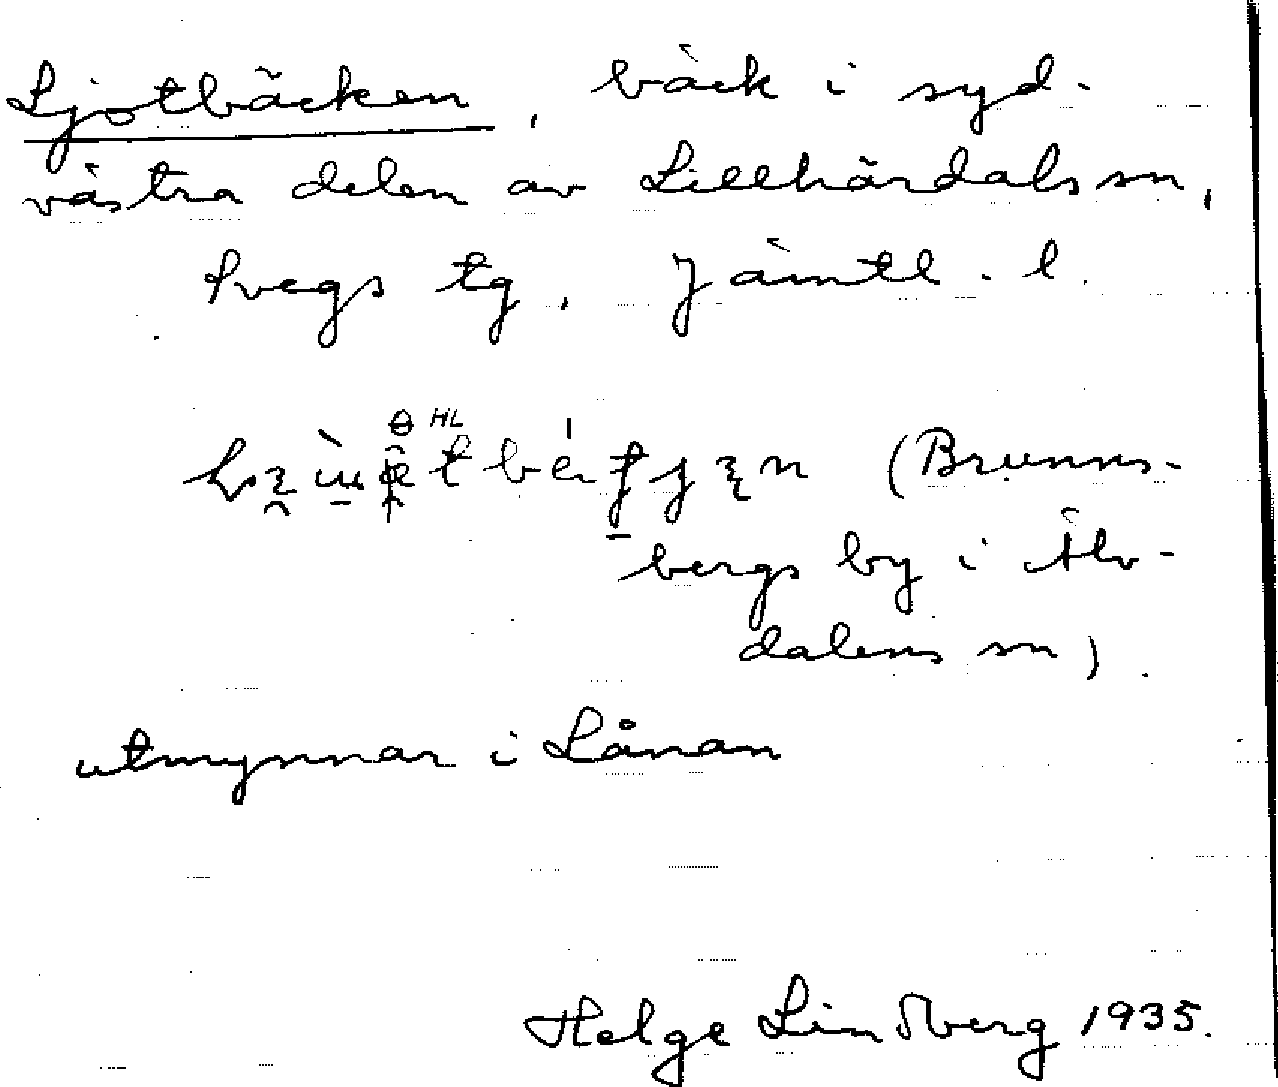 Ljotbäcken, bäck i syd-
västra delen av Lillhärdals sn,
Svegs tg, Jämtl. l.
HL
(Brunns-
bergs by i Älv-
dalens sn).
utmynnar i Lånan
Helge Lindberg 1935.